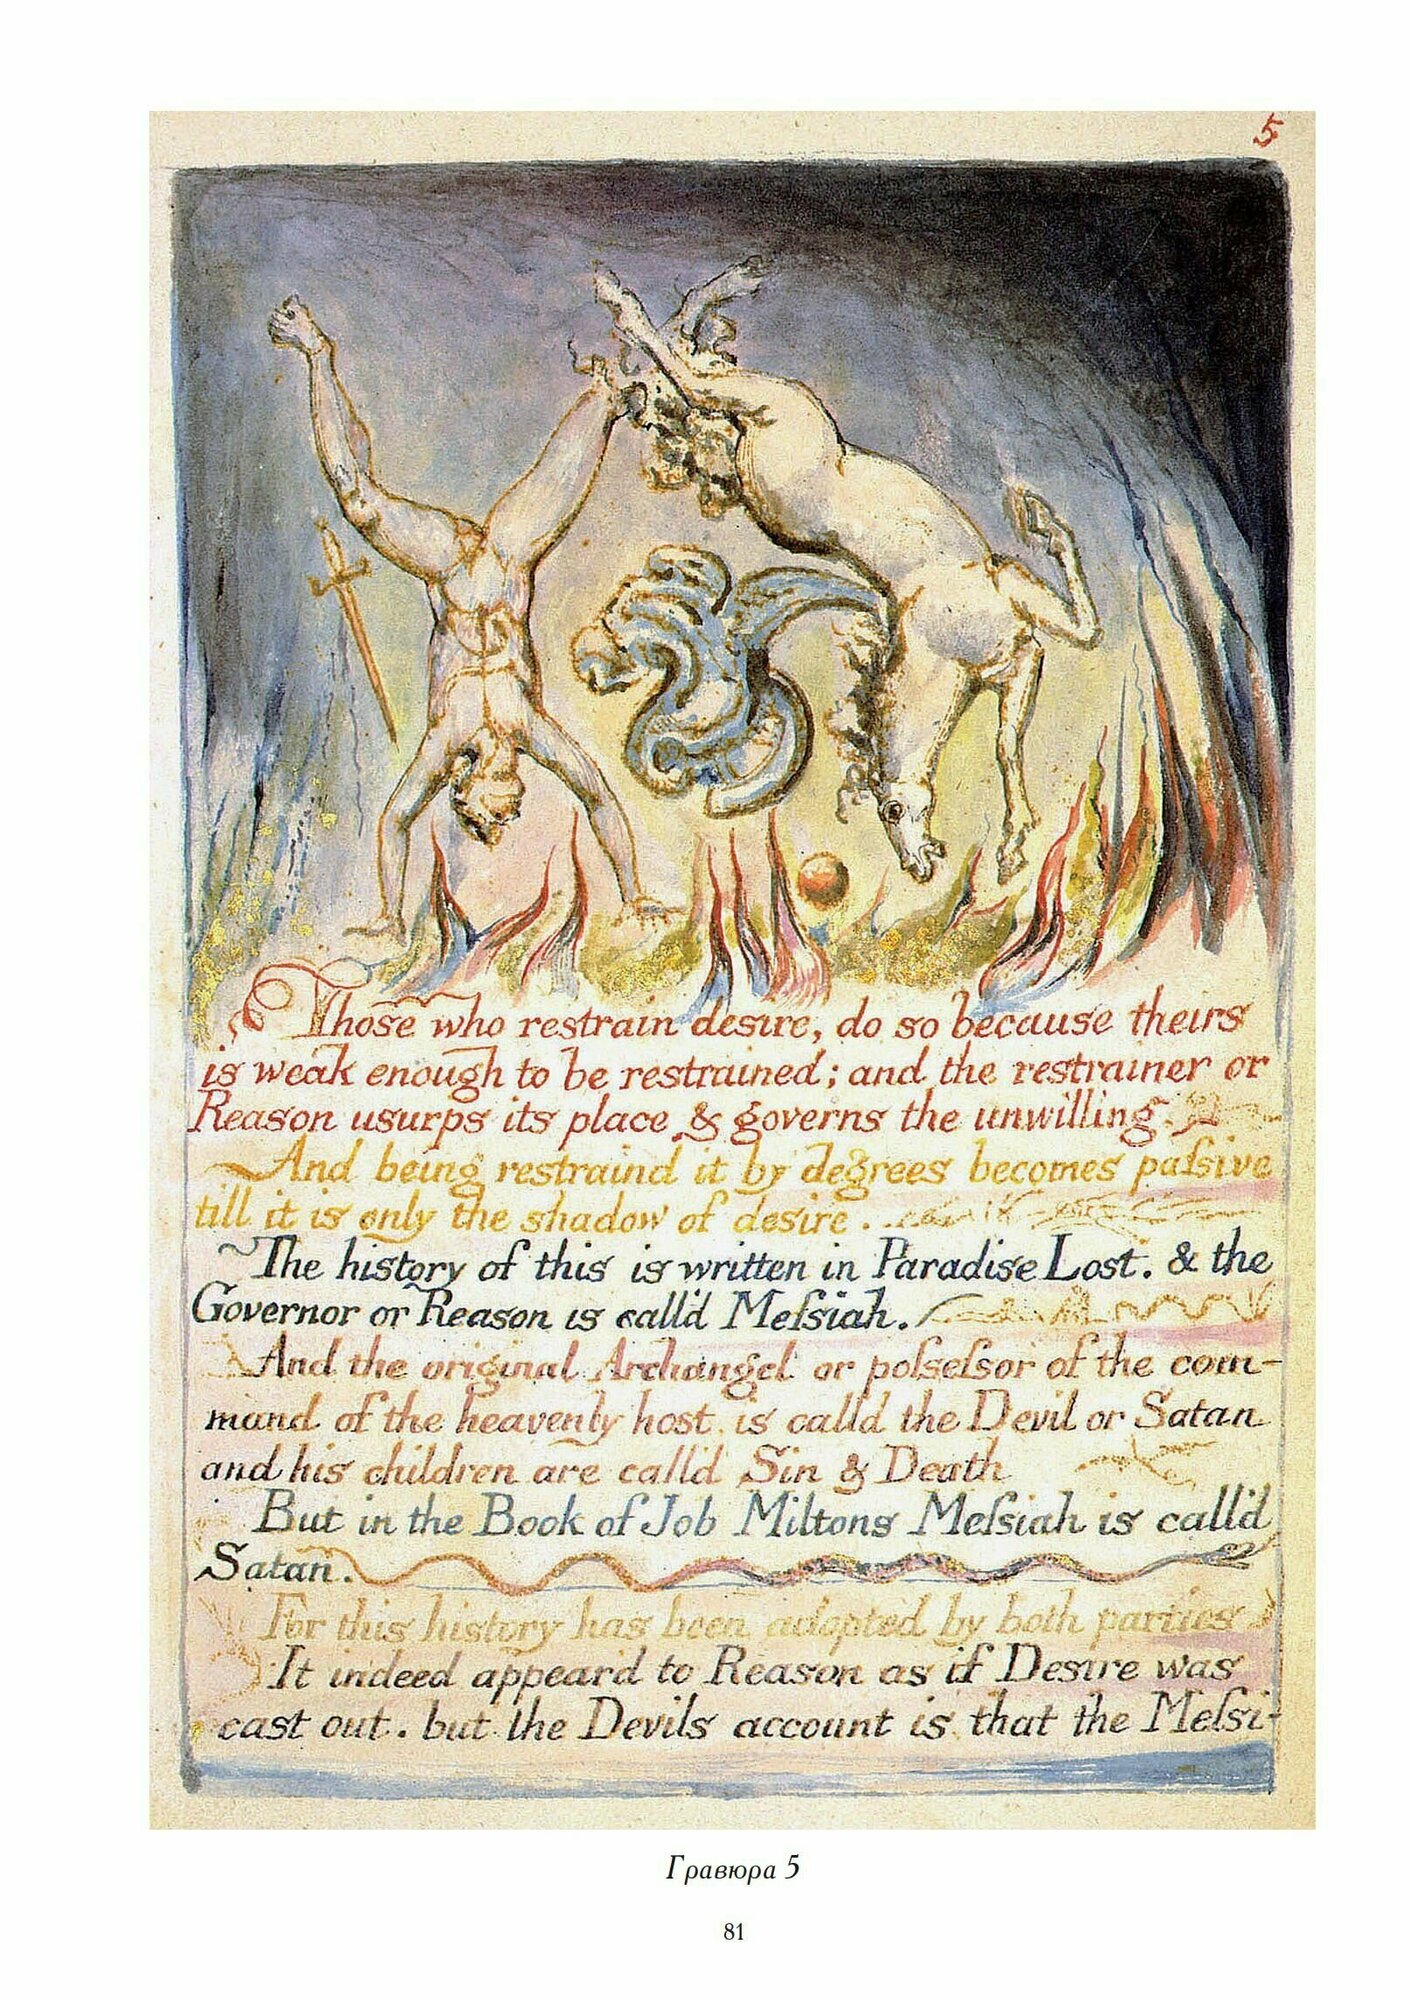 5
Those who restrain desire, do so because theirs
is weak enough to be restrained; and the restrainer or
Reason usurps its place & governs the unwilling.
And being restraind it by degrees becomes paſsive
till it is only the shadow of desire.
The history of this is written in Paradise Lost. & the
Governor or Reason is call'd Meſsiah.
And the original Archangel or poſseſsor of the com-
mand of the heavenly host, is calld the Devil or Satan
and his children are call'd Sin & Death
But in the Book of Job Miltons Meſsiah is call'd
Satan.
For this history has been adopted by both parties
It indeed appear'd to Reason as if Desire was
cast out. but the Devils account is that the Meſsi-
Гравюра 5
81